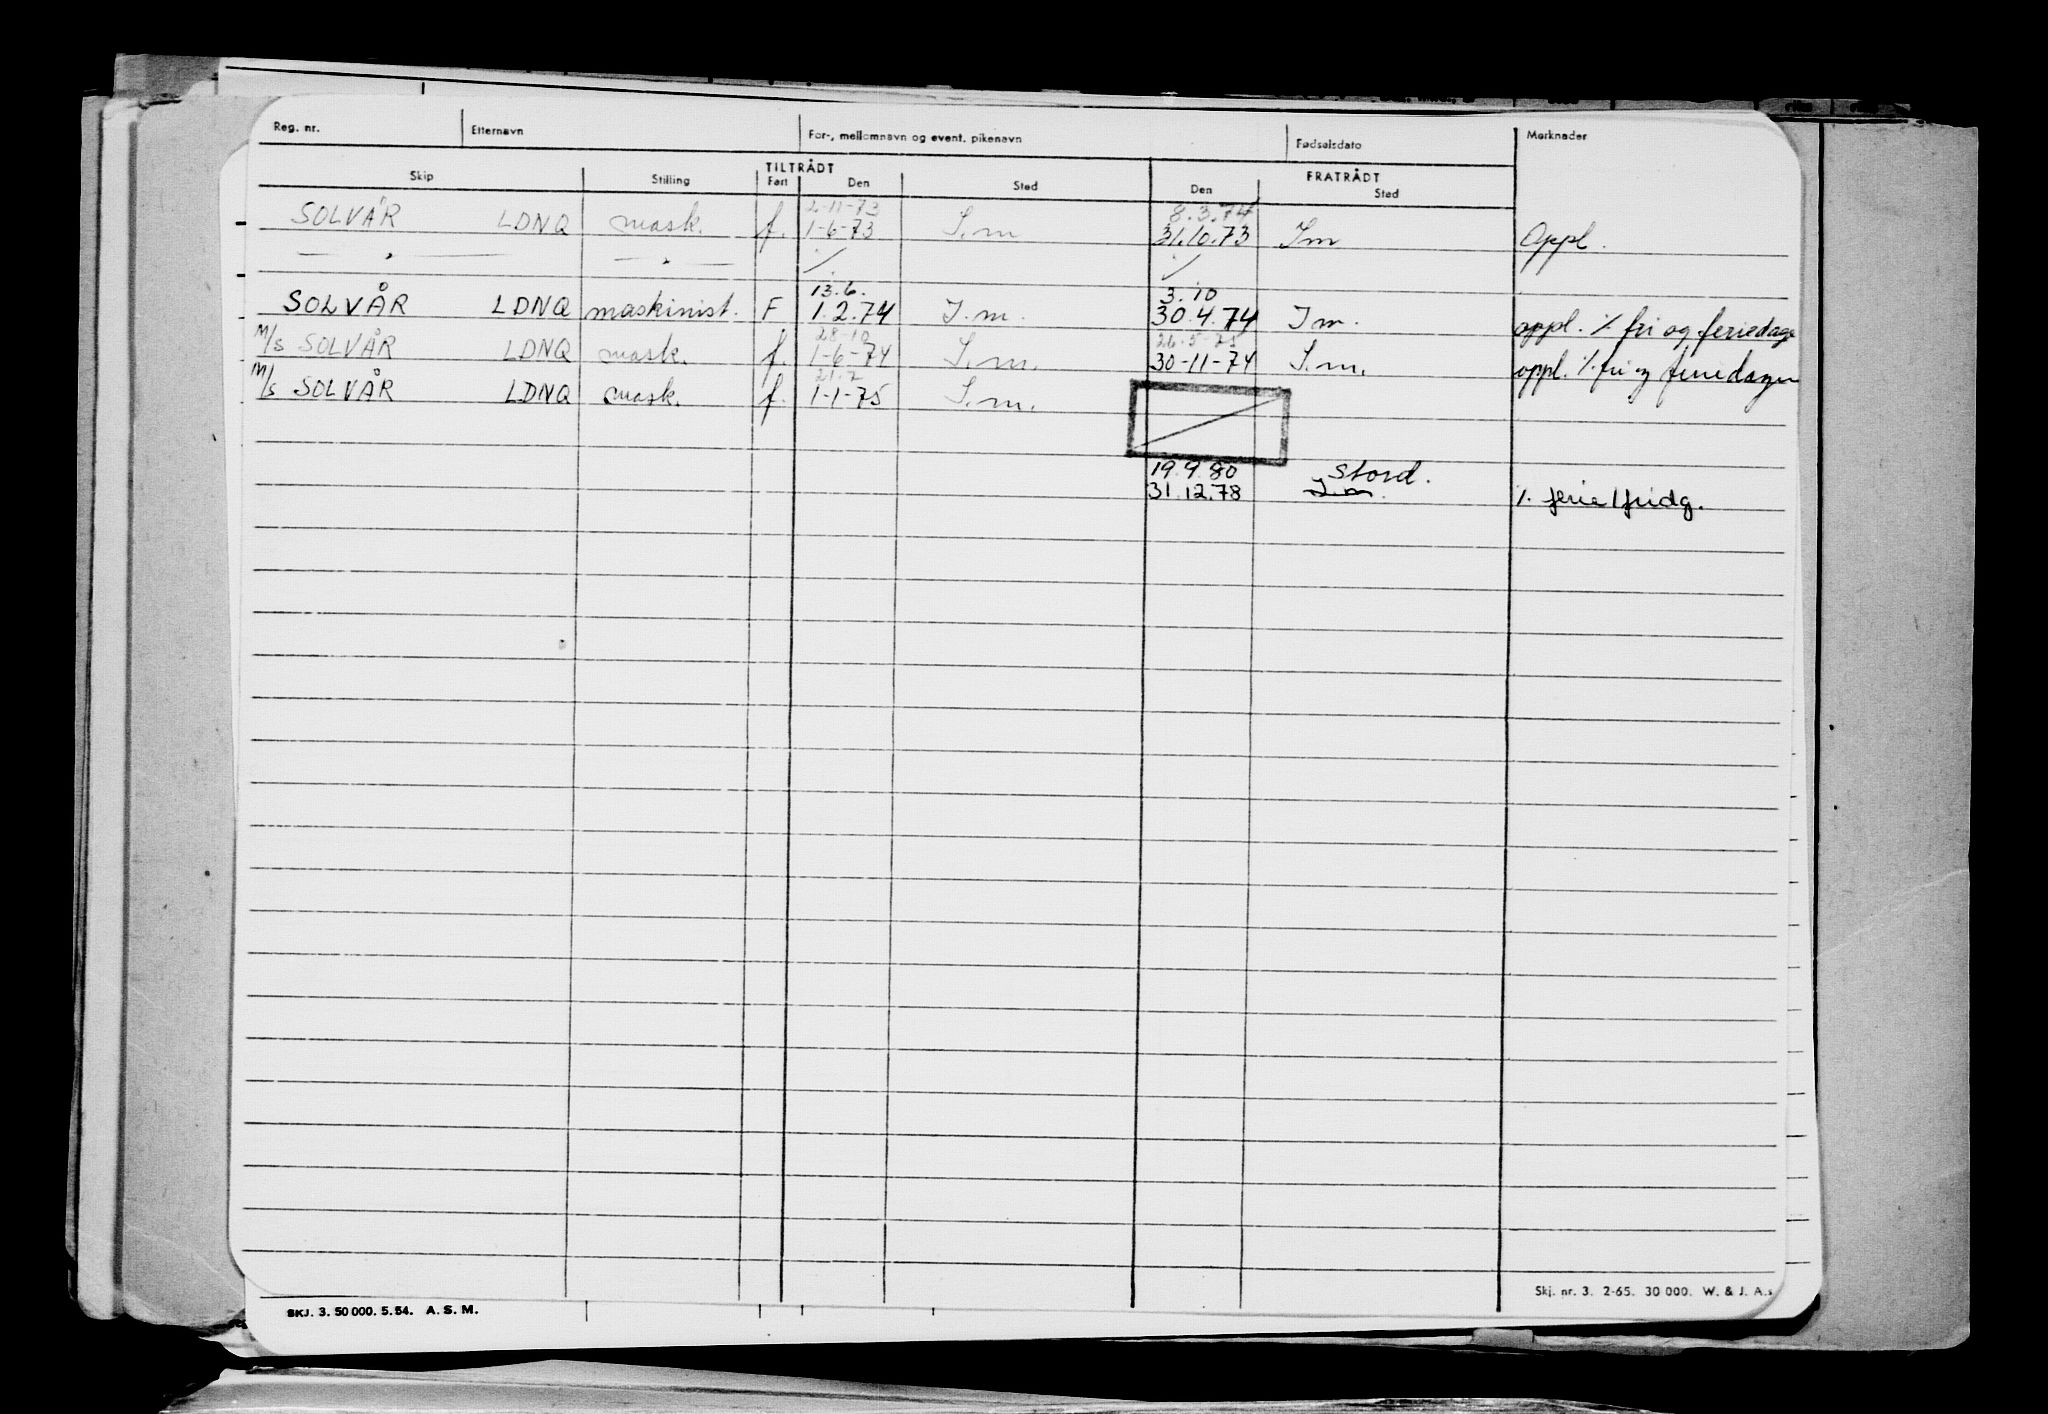 Reg. nr. Etternavn For-, mellomnavn og event. pikenavn Fødselsdato Merknader
TILTRÅDT FRATRÅDT
Skip Stilling Fart Den Sted Den Sted
2-11-73 8.3.74
SOLVÅR LDNQ mask. f. 1-6-73 I.m 31.10.73 Im Oppl.
— " — — " — / /
13.6. 3.10
SOLVÅR LDNQ maskinist. F 1.2.74 I.m. 30.4.74 Im. oppl. % fri og feriedage
28-10 26-5-75
M/s SOLVÅR LDNQ mask. f. 1-6-74 I.m. 30-11-74 I.m. oppl. % fri og feriedager
21.7
M/s SOLVÅR LDNQ mask. f. 1-1-75 I.m.
19.9.80 Stord.
31.12.78 I.m. % ferie/fridg.
Skj. nr. 3. 2-65. 30 000. W. & J. A.s
SKJ. 3. 50 000. 5. 54. A. S. M.